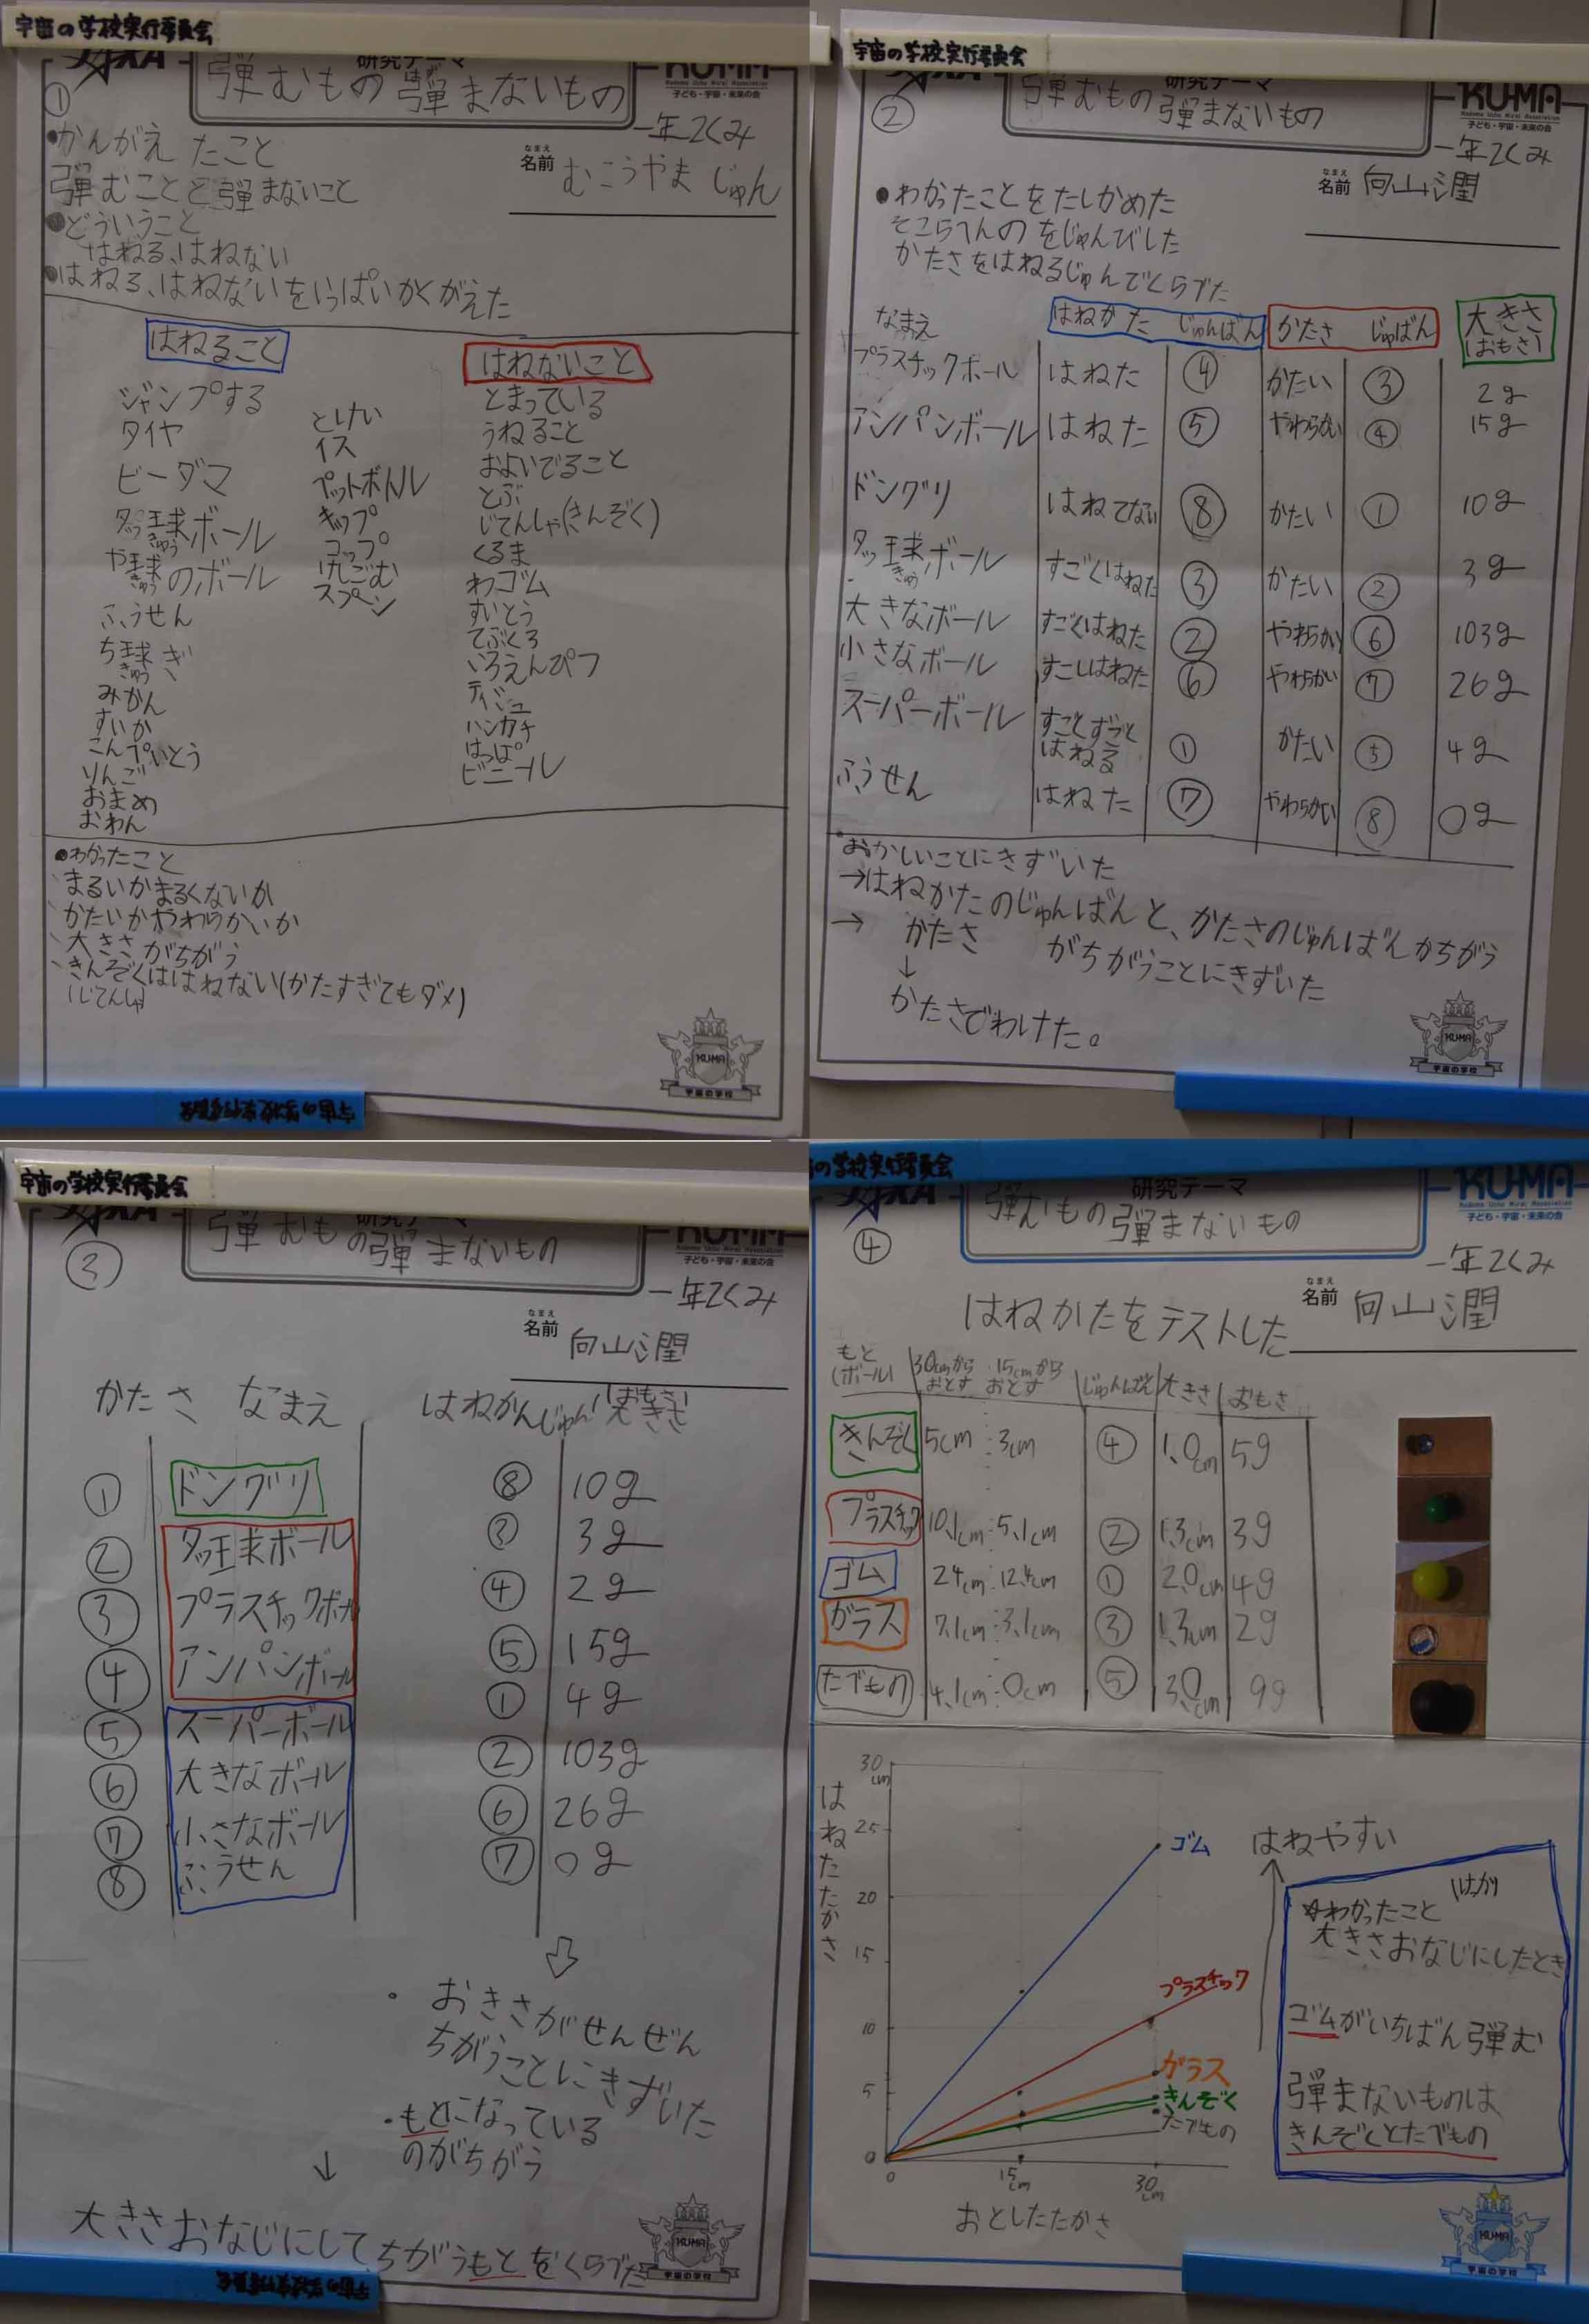 宇宙の学校実行委員会
研究テーマ
弾むもの弾まないもの
KU-MA
子ども・宇宙・未来の会
①
一年2くみ
なまえ
名前 むこうやま じゅん
●かんがえたこと
弾むことと弾まないこと
●どういうこと
はねる、はねない
●はねる、はねないをいっぱいかくがえた
はねること
ジャンプする
タイヤ
ビーダマ
タッ球ボール
きゅう
や球のボール
きゅう
ふうせん
ち球ぎ
きゅう
みかん
すいか
こんぺいとう
りんご
おまめ
おわん
とけい
イス
ペットボトル
キップ
コップ
けしごむ
スプーン
はねないこと
とまっている
うねること
およいでること
とぶ
じてんしゃ(きんぞく)
くるま
わゴム
すいとう
てぶくろ
いろえんぴつ
ティシュ
ハンカチ
はっぱ
ビニール
●わかったこと
まるいかまるくないか
かたいかやわらかいか
大きさがちがう
きんぞくははねない(かたすぎてもダメ)
(じてんしゃ)
KU-MA
宇宙の学校
宇宙の学校実行委員会
宇宙の学校実行委員会
研究テーマ
弾むもの弾まないもの
KU-MA
子ども・宇宙・未来の会
②
一年2くみ
なまえ
名前 向山潤
●わかったことをたしかめた
そこらへんのをじゅんびした
かたさをはねるじゅんでくらべた
なまえ はねかた じゅんばん かたさ じゅばん 大きさ(おもさ)
プラスチックボール はねた ④ かたい ③ 2g
アンパンボール はねた ⑤ やわらかい ④ 15g
ドングリ はねてない ⑧ かたい ① 10g
タッ球ボール すごくはねた ③ かたい ② 3g
きゅう
大きなボール すごくはねた ② やわらかい ⑥ 103g
小さなボール すこしはねた ⑥ やわらかい ⑦ 26g
スーパーボール すごとずうと はねる ① かたい ⑤ 4g
ふうせん はねた ⑦ やわらかい ⑧ 0g
おかしいことにきずいた
→はねかたのじゅんばんと、かたさのじゅんばんかちがう
→ かたさ がちがうことにきずいた
↓
かたさでわけた。
KU-MA
宇宙の学校
宇宙の学校実行委員会
研究テーマ
弾むもの弾まないもの
子ども・宇宙・未来の会
③
一年2くみ
なまえ
名前 向山潤
かたさ なまえ はねかんじゅん (おもさ)大きさ
① ドングリ ⑧ 10g
② タッ球ボール ③ 3g
③ プラスチックボール ④ 2g
④ アンパンボール ⑤ 15g
⑤ スーパーボール ① 4g
⑥ 大きなボール ② 103g
⑦ 小さなボール ⑥ 26g
⑧ ふうせん ⑦ 0g
・おきさがせんぜん
ちがうことにきずいた
・もとになっている
のがちがう
↓
大きさおなじにして、ちがうもとをくらべた
KU-MA
宇宙の学校
宇宙の学校実行委員会
の学校実行委員会
研究テーマ
弾むもの弾まないもの
KU-MA
子ども・宇宙・未来の会
④
一年2くみ
なまえ
名前 向山潤
はねかたをテストした
もと(ボール) 30cmからおとす 15cmからおとす じゅんばん 大きさ おもさ
きんぞく 5cm 3cm ④ 1.0cm 5g
プラスチック 10.1cm 5.1cm ② 1.3cm 3g
ゴム 24cm 12.4cm ① 2.0cm 4g
ガラス 7.1cm 3.1cm ③ 1.3cm 2g
たでもの 4.1cm 0cm ⑤ 3.0cm 9g
はねたたかさ
30cm
25
20
15
10
5
0
0
15cm
30cm
おとしたたかさ
ゴム
プラスチック
ガラス
きんぞく
たでもの
はねやすい
わかったこと
大きさおなじにしたとき
ゴムがいちばん弾む
弾まないものは
きんぞくとたでもの
KU-MA
宇宙の学校